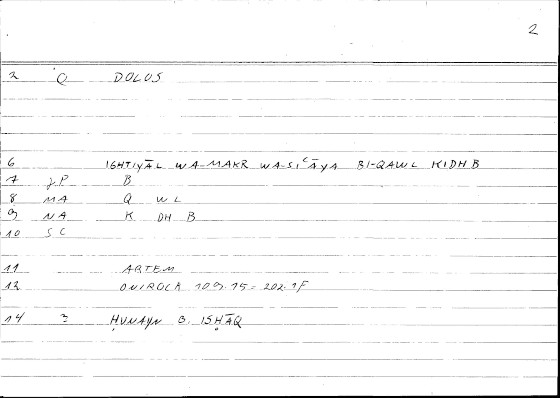 2
2 Q DOLOS
6 IGHTIYĀL WA-MAKR WA-SIᶜĀYA BI-QAWL KIDHB
7 JP B
8 MA Q WL
9 NA K DH B
10 SC
11 ARTEM
12 ONIROCR 109.15 = 202.1F
14 3 ḤUNAYN B. ISḤĀQ